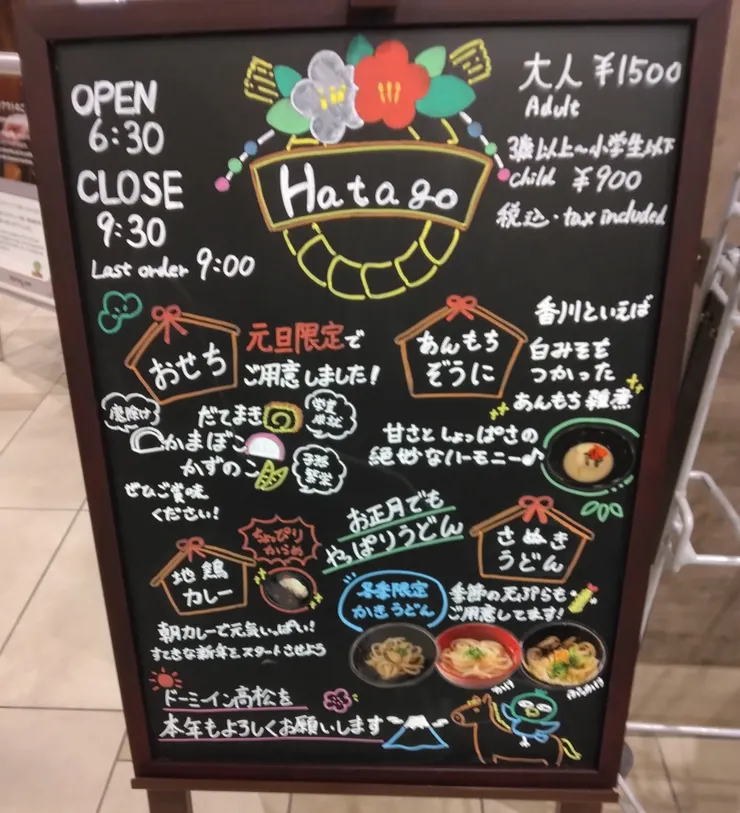 OPEN
6:30
CLOSE
9:30
Last order 9:00
Hatago
大人 ¥1500
Adult
3歳以上～小学生以下
child ¥900
税込・tax included
おせち
元旦限定で
ご用意しました!
魔除け
だてまき
学業
成就
かまぼこ
かずのこ
子孫
繁栄
ぜひご賞味
ください!
あんもち
ぞうに
香川といえば
白みそを
つかった
あんもち雑煮
甘さとしょっぱさの
絶妙なハーモニー♪
地鶏
カレー
ちょっぴり
からめ
朝カレーで元気いっぱい!
すてきな新年をスタートさせよう
お正月でも
やっぱりうどん
さぬき
うどん
冬季限定
かきうどん
季節の天ぷらも
ご用意してます!
かけ
ドーミーイン高松を
本年もよろしくお願いします